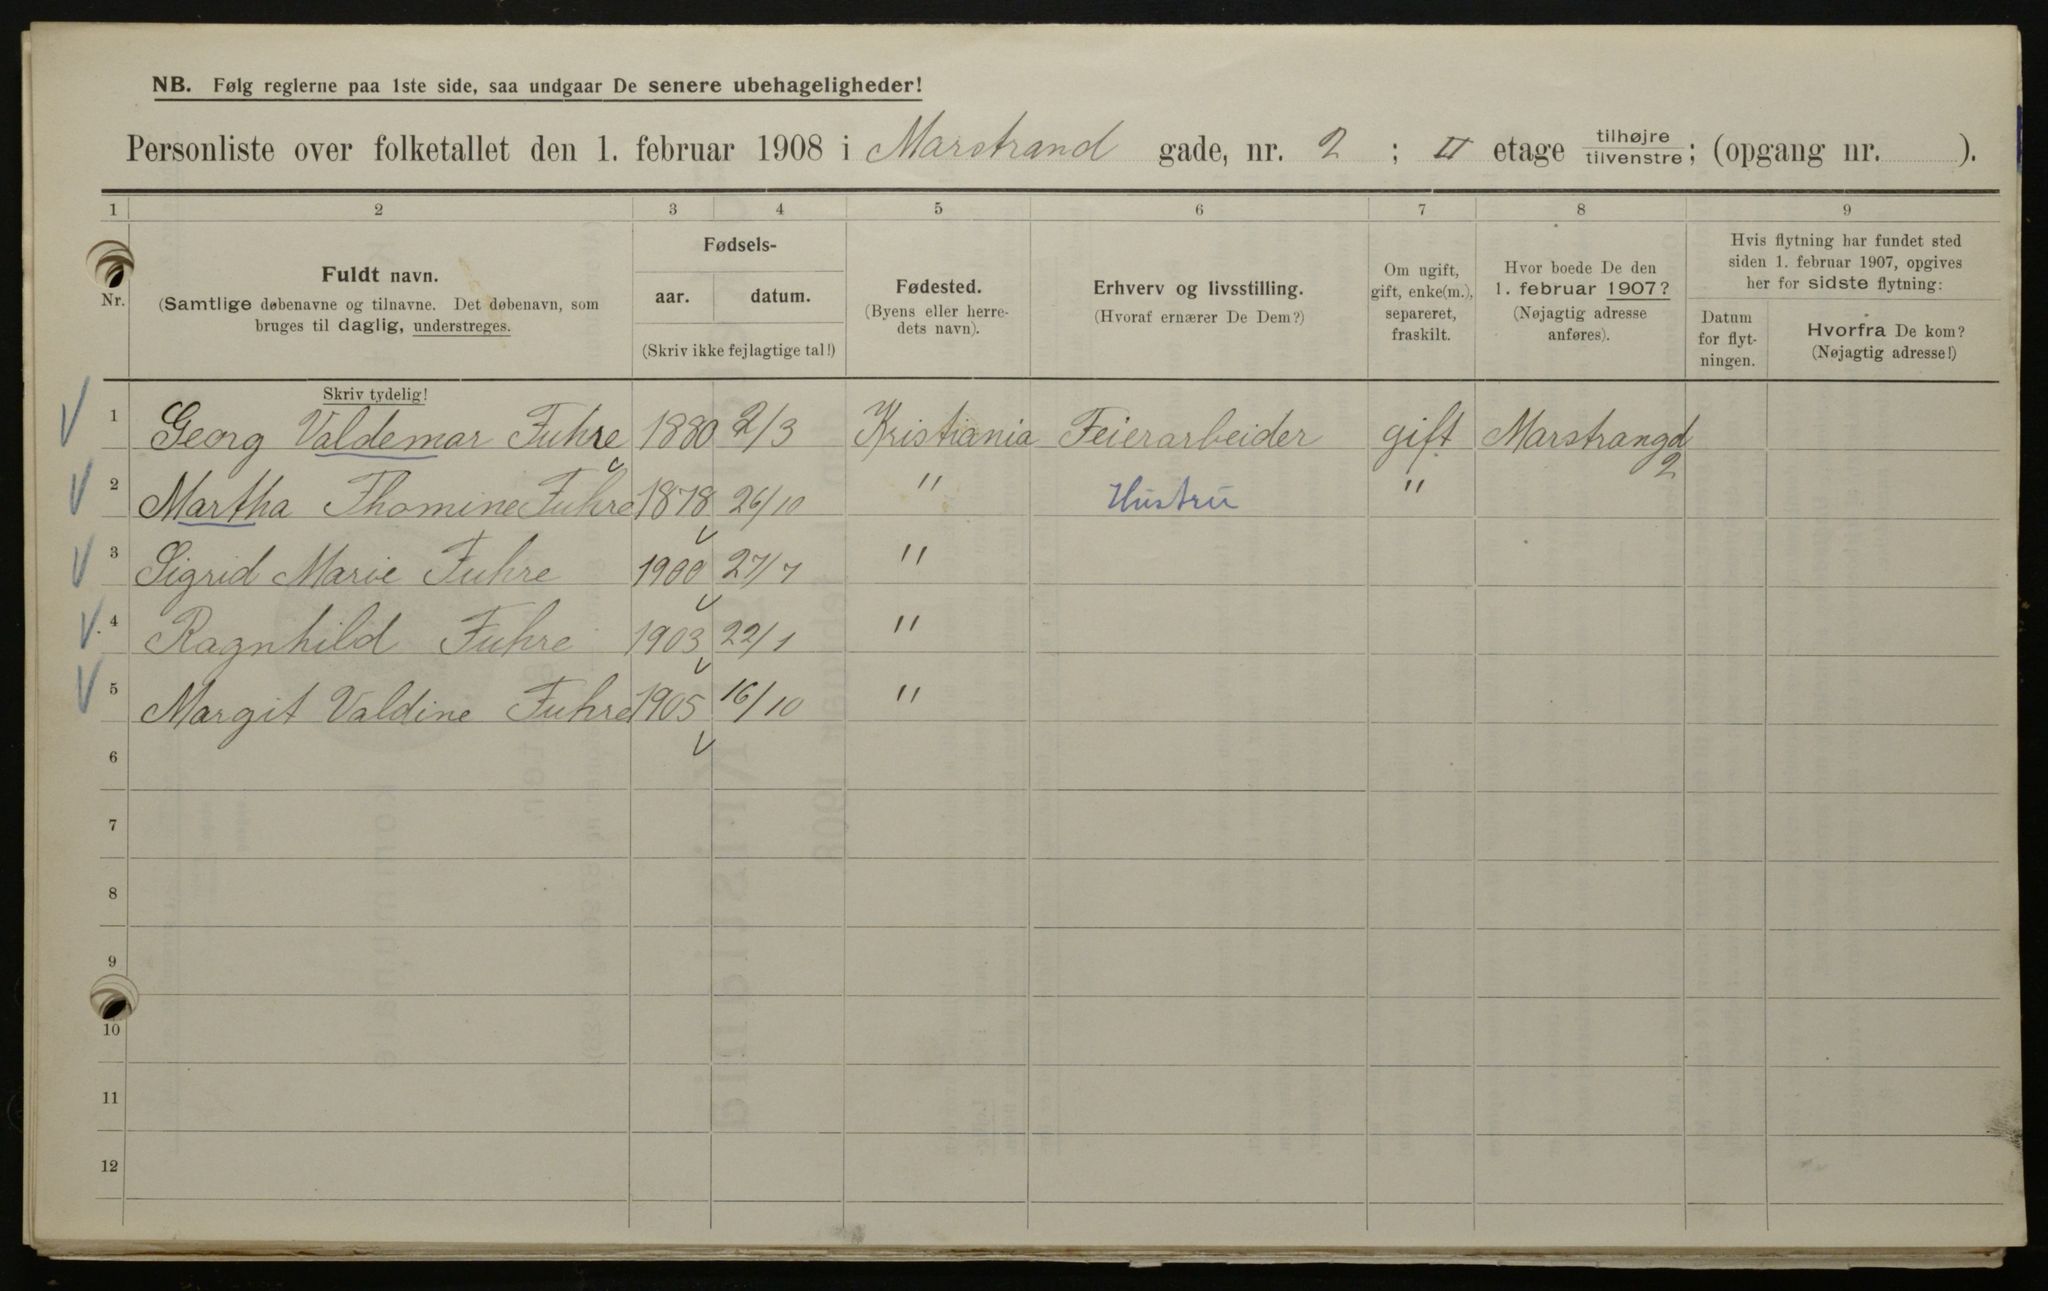 NB. Følg reglerne paa 1ste side, saa undgaar De senere ubehageligheder!
Personliste over folketallet den 1. februar 1908 i Marstrand gade, nr. 2 ; II etage tilhøjre/tilvenstre; (opgang nr. ).
1 2 3 4 5 6 7 8 9
Nr.
Fuldt navn.
(Samtlige døbenavne og tilnavne. Det døbenavn, som
bruges til daglig, understreges.
Skriv tydelig!
Fødsels-
aar. datum.
(Skriv ikke fejlagtige tal!)
Fødested.
(Byens eller herre-
dets navn).
Erhverv og livsstilling.
(Hvoraf ernærer De Dem?)
Om ugift,
gift, enke(m.),
separeret,
fraskilt.
Hvor boede De den
1. februar 1907?
(Nøjagtig adresse
anføres).
Hvis flytning har fundet sted
siden 1. februar 1907, opgives
her for sidste flytning:
Datum
for flyt-
ningen.
Hvorfra De kom?
(Nøjagtig adresse!)
1 Georg Valdemar Fuhre 1880 2/3 Kristiania Feierarbeider gift Marstrangd
2
2 Martha Thomine Fuhre 1878 26/10 " Hustru "
3 Sigrid Marie Fuhre 1900 27/7 "
4 Ragnhild Fuhre 1903 22/1 "
5 Margit Valdine Fuhre 1905 16/10 "
6
7
8
9
10
11
12